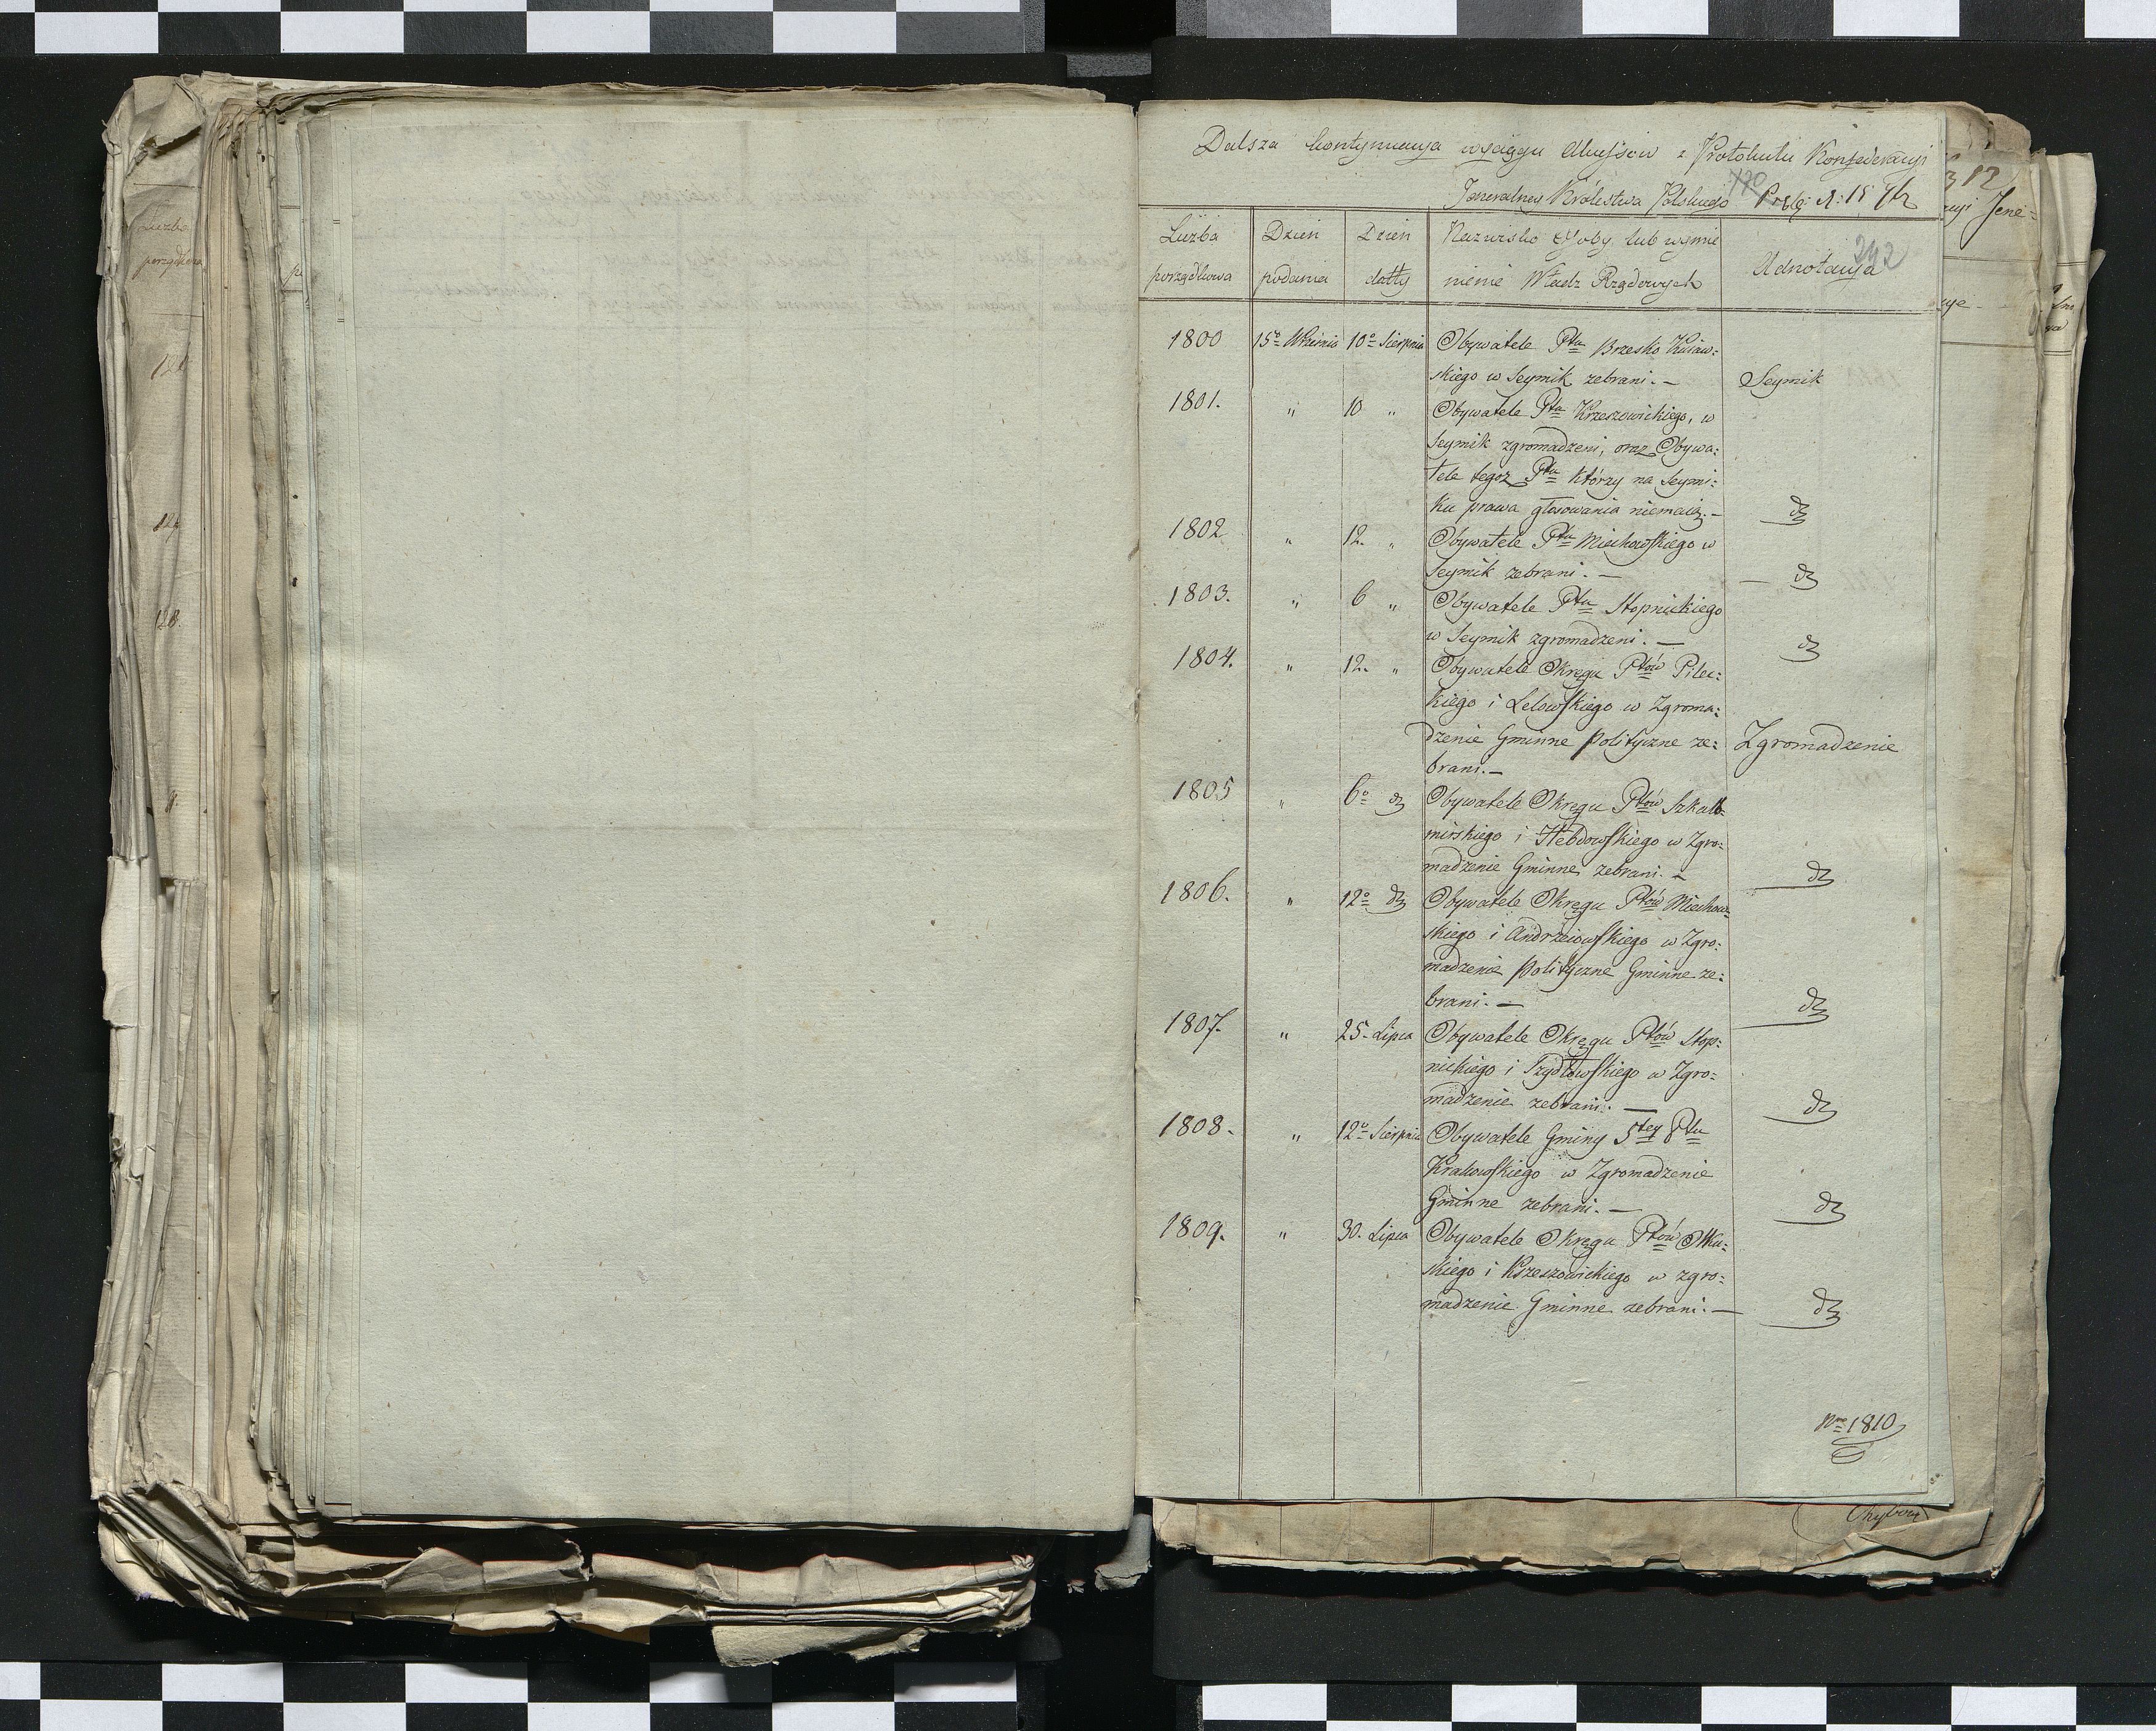 Dalsza kontynuacya wyciągu Akcessów z Protokułu Konfederacyi
Jeneralney Królestwa Polskiego
242
Liczba porządkowa
Dzień podania
Dzień datty
Nazwisko Osoby lub wymie
nienie Władz Rządowych
Adnotacya
1800 15º Września 10º Sierpnia Obywatele Ptu Brzesko Kuiaw:
skiego w Seymik zebrani.— Seymik
1801. " 10 " Obywatele Ptu Krzeszowickiego, w
Seymik zgromadzeni, oraz Obywa:
tele tegoż Ptu którzy na Seymi:
ku prawa głosowania niemaią.— do
1802 " 12. " Obywatele Ptu Miechowskiego w
Seymik zebrani.— do
1803. " 6 " Obywatele Ptu Stopnickiego
w Seymik zgromadzeni.— do
1804. " 12. " Obywatele Okręgu Ptów Pilec:
kiego i Lelowskiego w Zgroma:
dzenie Gminne Polityczne ze: Zgromadzenie
brani.—
1805 " 6º do Obywatele Okręgu Ptów Szkalb
mirskiego i Hebdowskiego w Zgro:
madzenie Gminne zebrani.— do
1806. " 12º do Obywatele Okręgu Ptów Miechow:
skiego i Andrzeiowskiego w Zgro:
madzenie Polityczne Gminne ze:
brani.— do
1807. " 25. Lipca Obywatele Okręgu Ptów Stop:
nickiego i Szydłowskiego w Zgro:
madzenie zebrani.— do
1808. " 12º Sierpnia Obywatele Gminy 5tey Ptu
Krakowskiego w Zgromadzenie
Gminne zebrani.— do
1809. " 30. Lipca Obywatele Okręgu Ptów Olku:
skiego i Krzeszowickiego w zgro:
madzenie Gminne zebrani.— do
Nro 1810